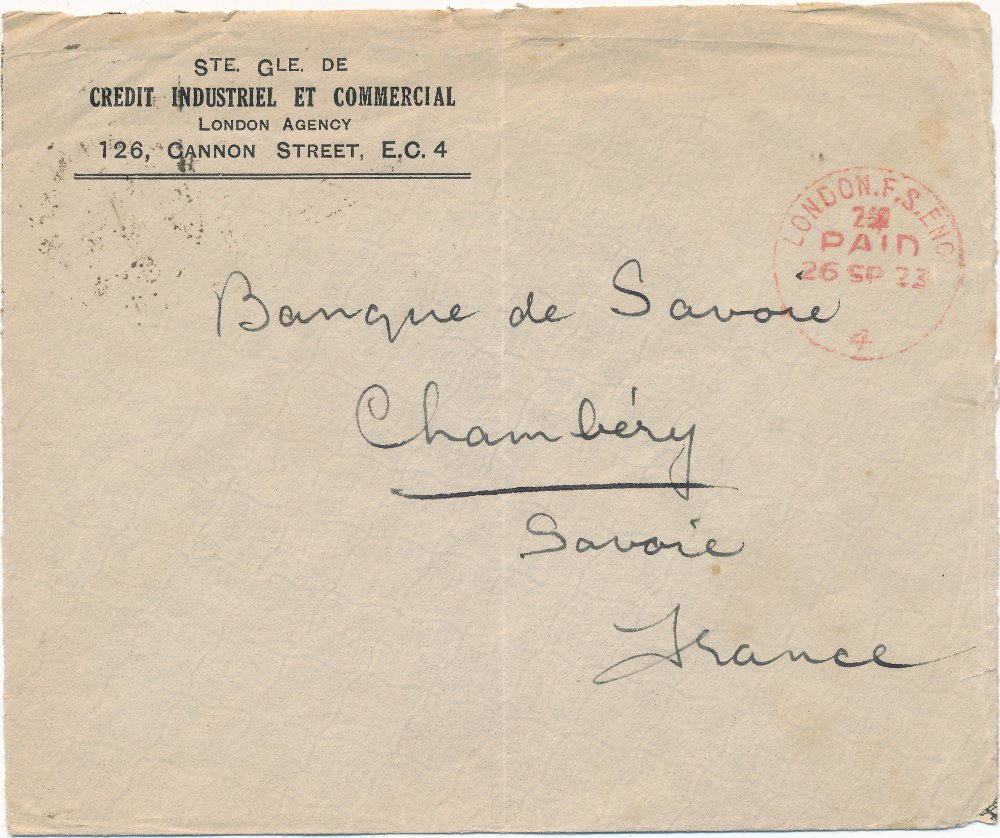 STE. GLE. DE
CREDIT INDUSTRIEL ET COMMERCIAL
LONDON AGENCY
126, CANNON STREET, E.C. 4
LONDON.F.S.ENG
PAID
26 SP 23
4
Banque de Savoie
Chambéry
Savoie
France